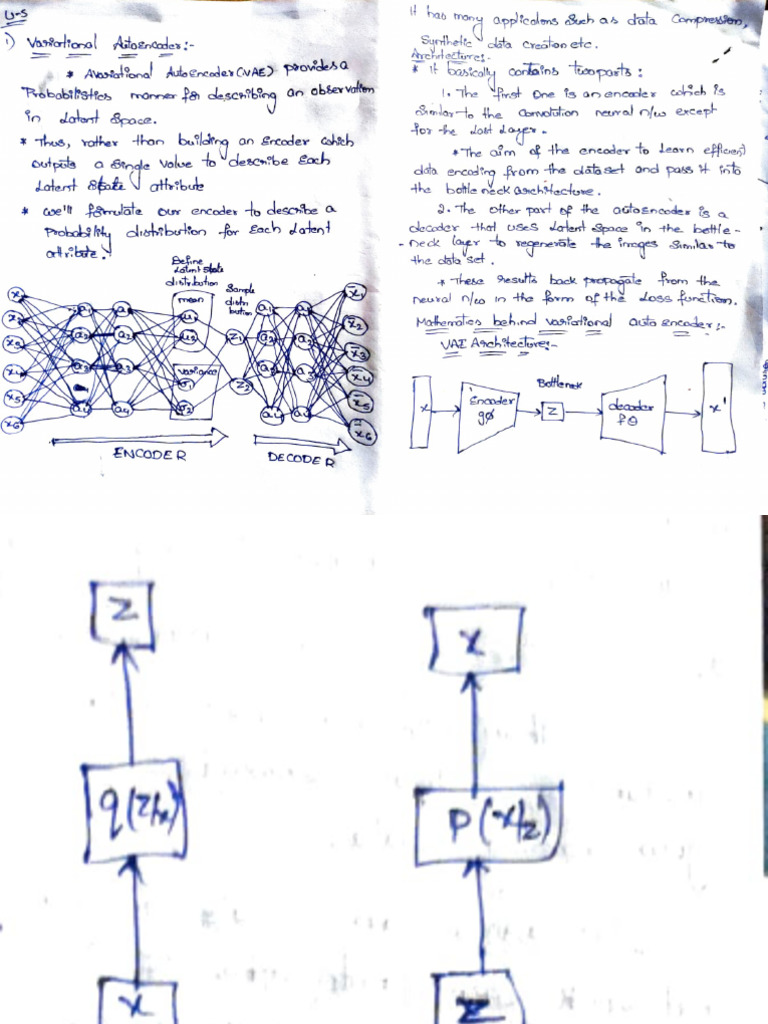 U-5
1) Variational Autoencoder:-
* A variational Autoencoder (VAE) provides a
Probabilistics manner for describing an observation
in Latent Space.
* Thus, rather than building an Encoder which
outputs a single value to describe each
Latent State attribute
* we'll formulate our encoder to describe a
Probability distribution for each Latent
attribute.
Define
Latent state
distribution
Sample
distri
bution
mean
variance
x1
x2
x3
x4
x5
x6
a1
a2
a3
a4
a1
a2
a3
a4
μ1
μ2
σ1
σ2
z1
z2
a1
a2
a3
a4
a1
a2
a3
a4
x̄1
x̄2
x̄3
x̄4
x̄5
x̄6
ENCODER
DECODER
It has many applications such as data compression,
Synthetic data creation etc.
Architecture:-
* it basically contains two parts:
1. The first one is an encoder which is
similar to the convolution neural n/w except
for the last layer.
* The aim of the encoder to learn efficient
data encoding from the dataset and pass it into
the bottle neck architecture.
2. The other part of the autoencoder is a
decoder that uses latent space in the bottle-
-neck layer to regenerate the images similar to
the data set.
* These results back propagate from the
neural n/w in the form of the Loss function.
Mathematics behind variational auto encoder:-
VAE Architecture:-
x
Encoder
gø
Bottleneck
z
decoder
fθ
x'
z
q(z/x)
x
x
p(x/z)
z